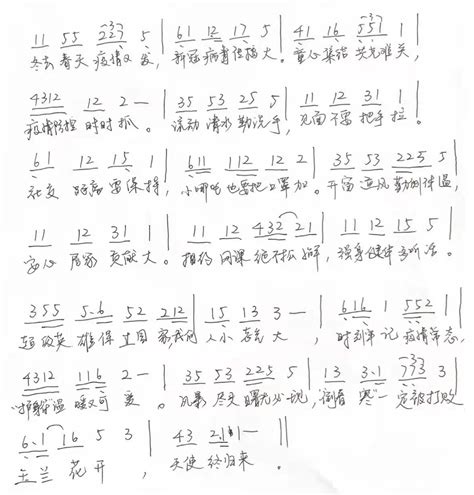 11 55 223 5 | 61 12 17 5 | 41 16 551 1 |
冬去春天疫情又发，新冠病毒 大。童心集结共克难关，
4312 12 2 — | 35 53 25 5 | 11 12 31 1 |
疫情防控时时抓。流动清水勤洗手，见面不要把手拉。
61 12 15 1 | 611 112 12 2 | 35 53 225 5 |
社交距离要保持，小哪吒也要把口罩加。开窗通风勤测体温，
11 12 31 1 | 11 12 432 21 | 11 12 15 5 |
安心居家贡献大。 网课绝不松懈，强身健体 。
355 5·6 52 212 | 15 13 3 — | 616 1 552 1 |
英雄保 国家，我们人小志气大，时刻牢记疫情常态，
4312 116 2 — | 35 53 225 5 | 13 3·1 333 3 |
温暖又可爱。风暴尽头曙光必现，倒春寒一定被打败
6·1 16 5 3 | 43 2·1 1 — ||
玉兰花开，天使终归来。